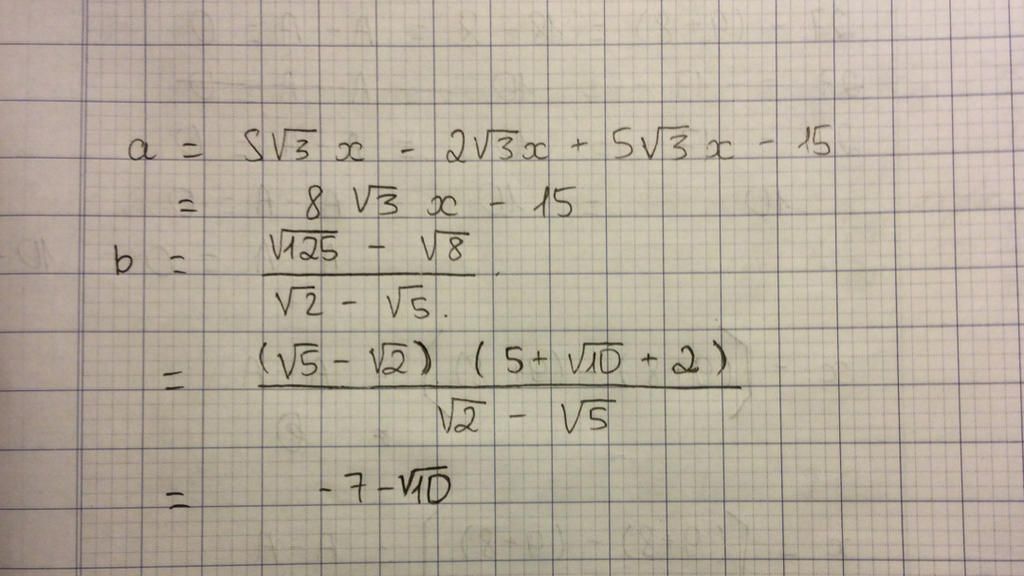 a = 5√3 x - 2√3x + 5√3 x - 15
= 8 √3 x - 15
b = (√125 - √8) / (√2 - √5).
= ((√5 - √2) (5 + √10 + 2)) / (√2 - √5)
= -7 - √10